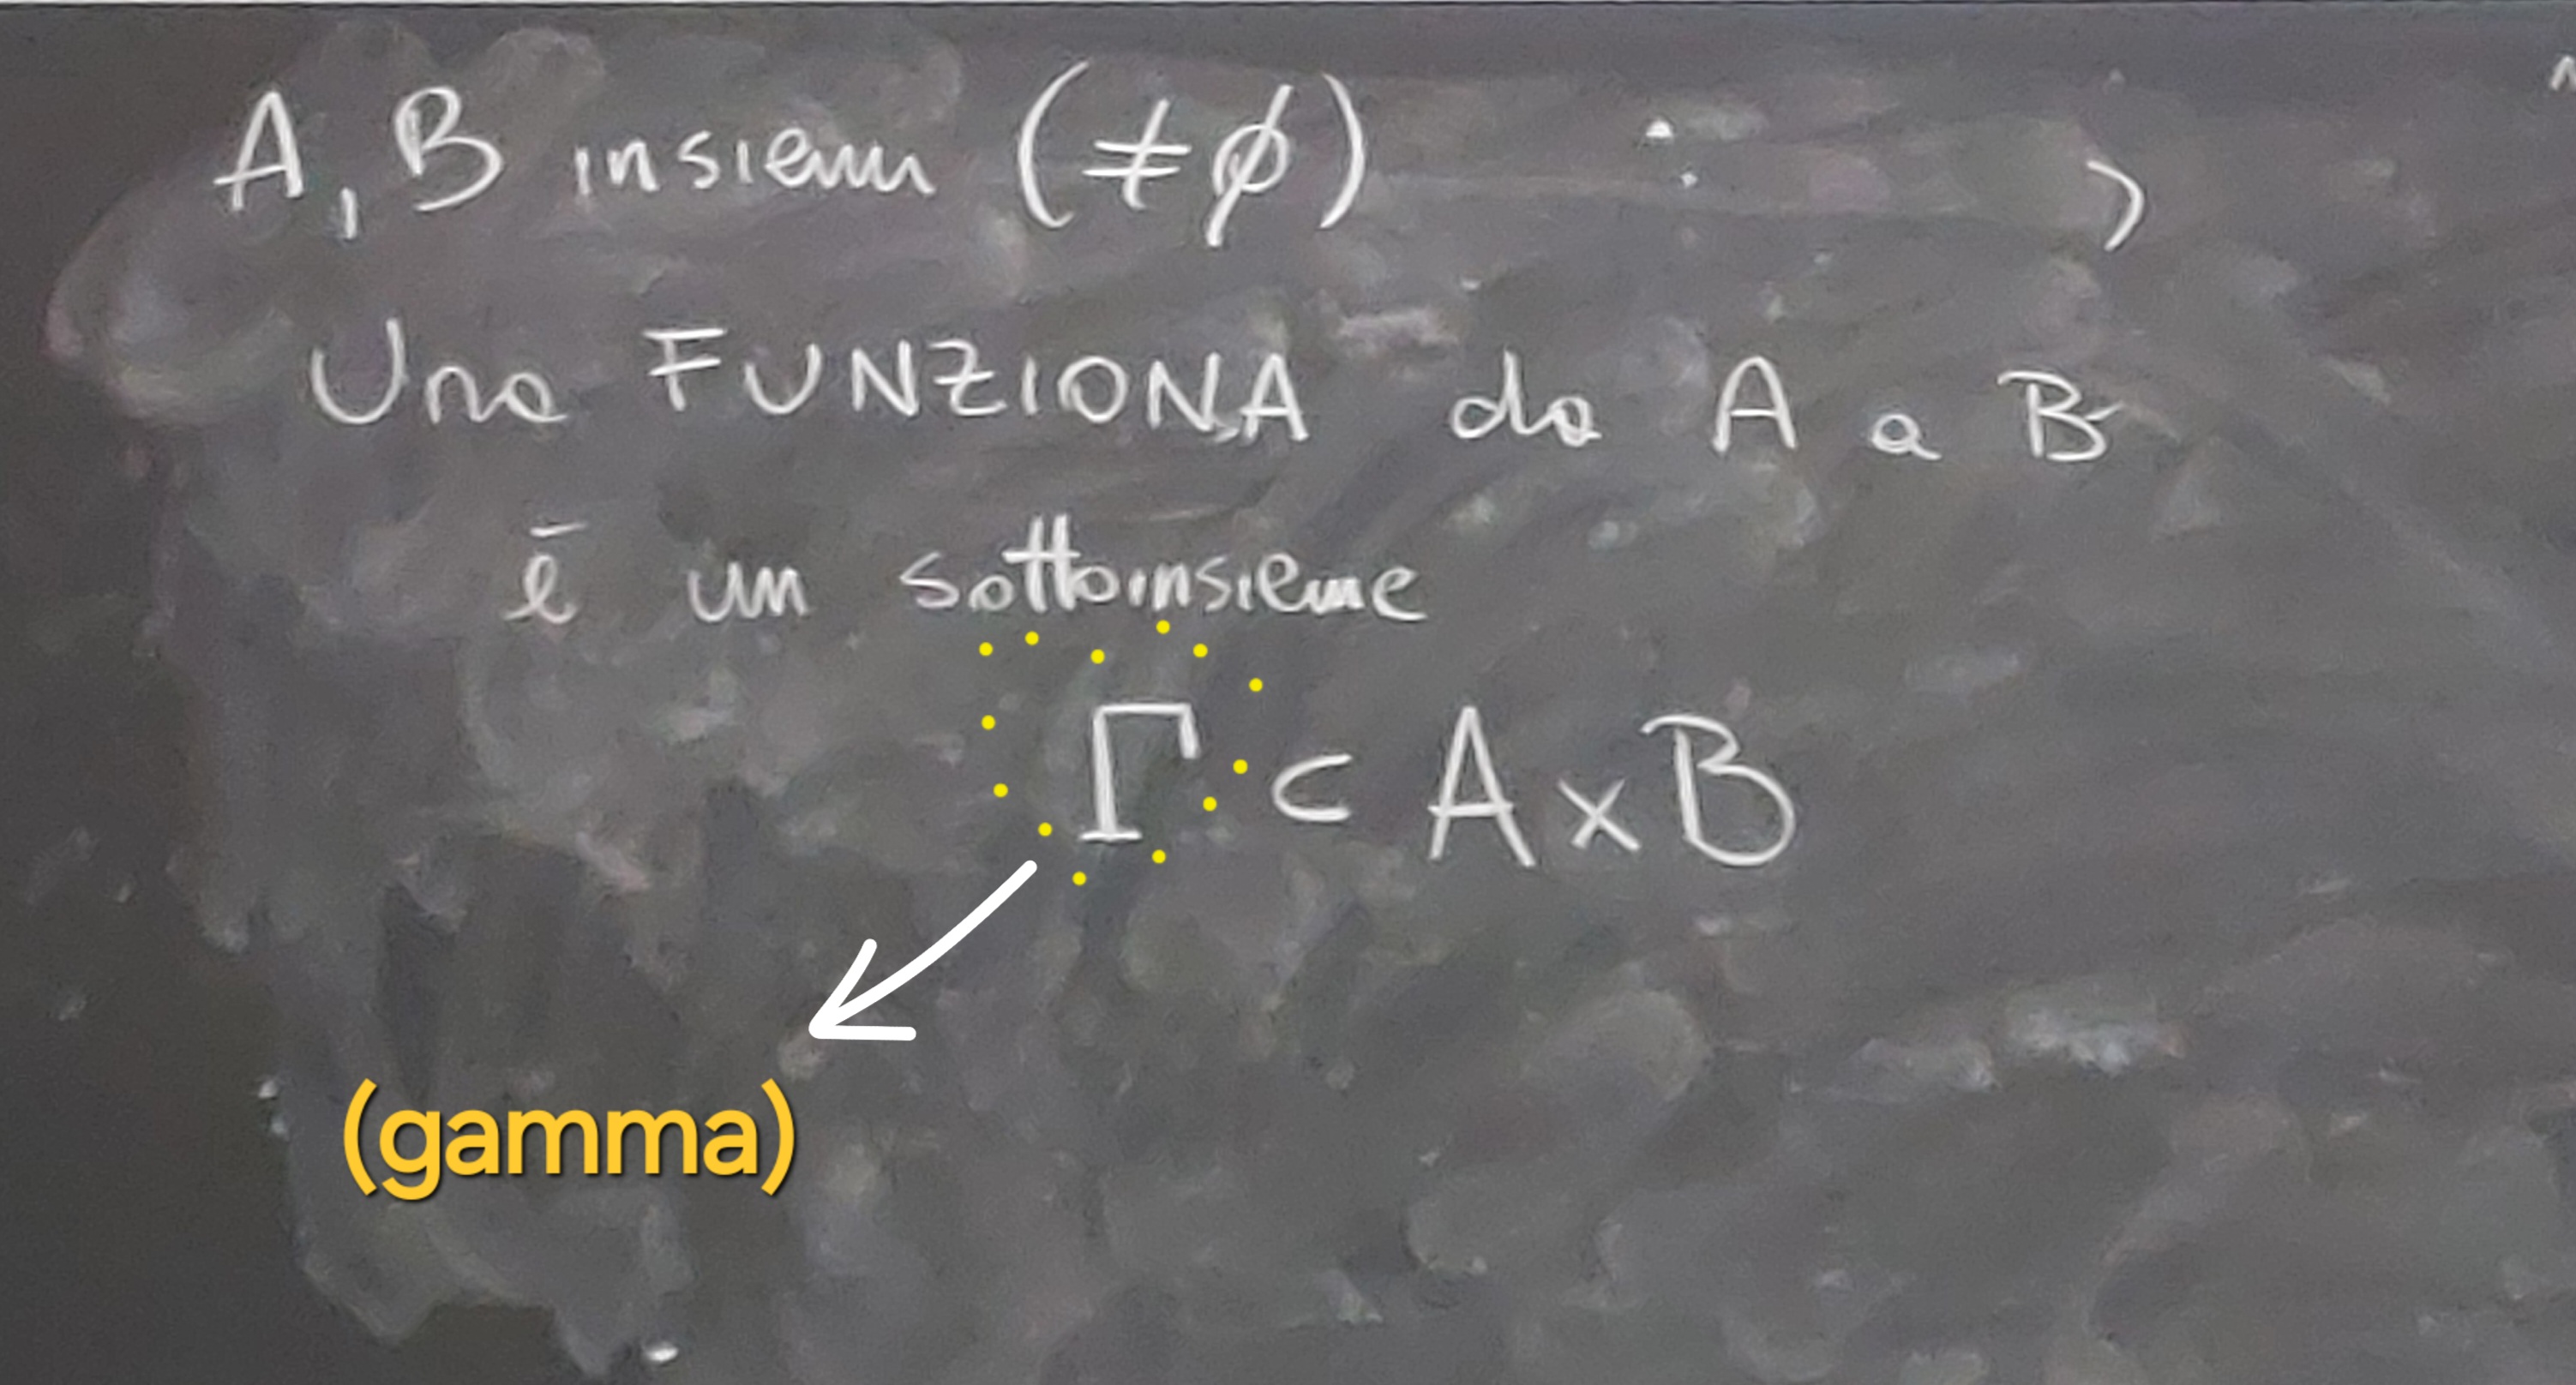 A, B insiemi (≠∅)
Una FUNZIONA da A a B
è un sottoinsieme
Γ ⊂ A × B
(gamma)